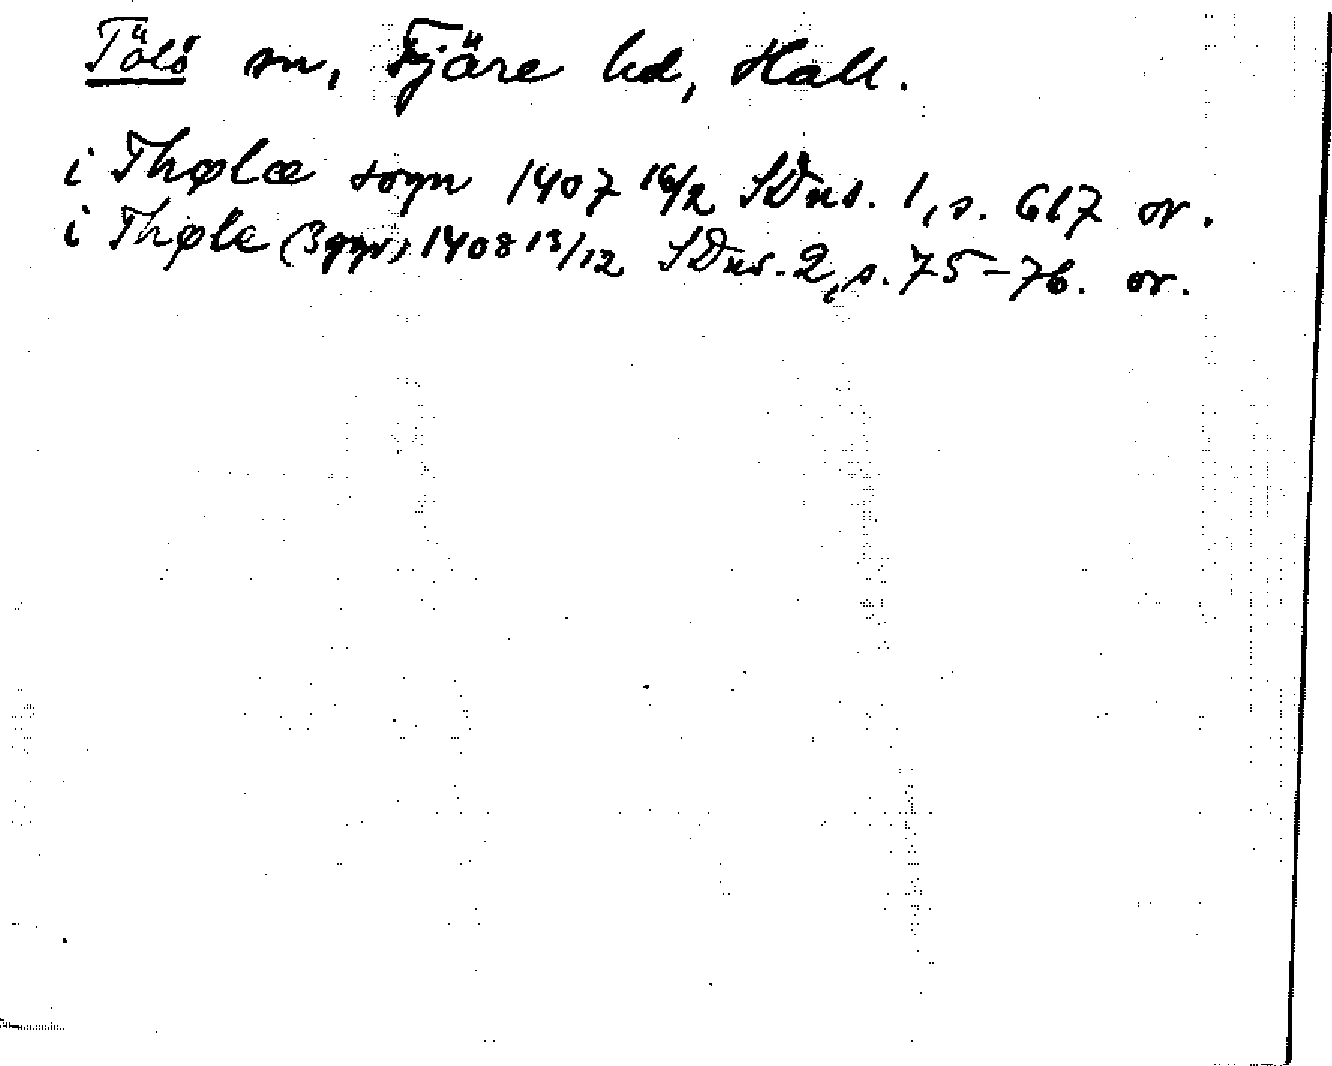 Tölö sn, Fjäre hd, Hall.
i Thølæ sogn 1407 16/2 SDns. 1, s. 617 or.
i Thøle (3 ggr) 1408 13/12 SDns. 2, s. 75-76. or.